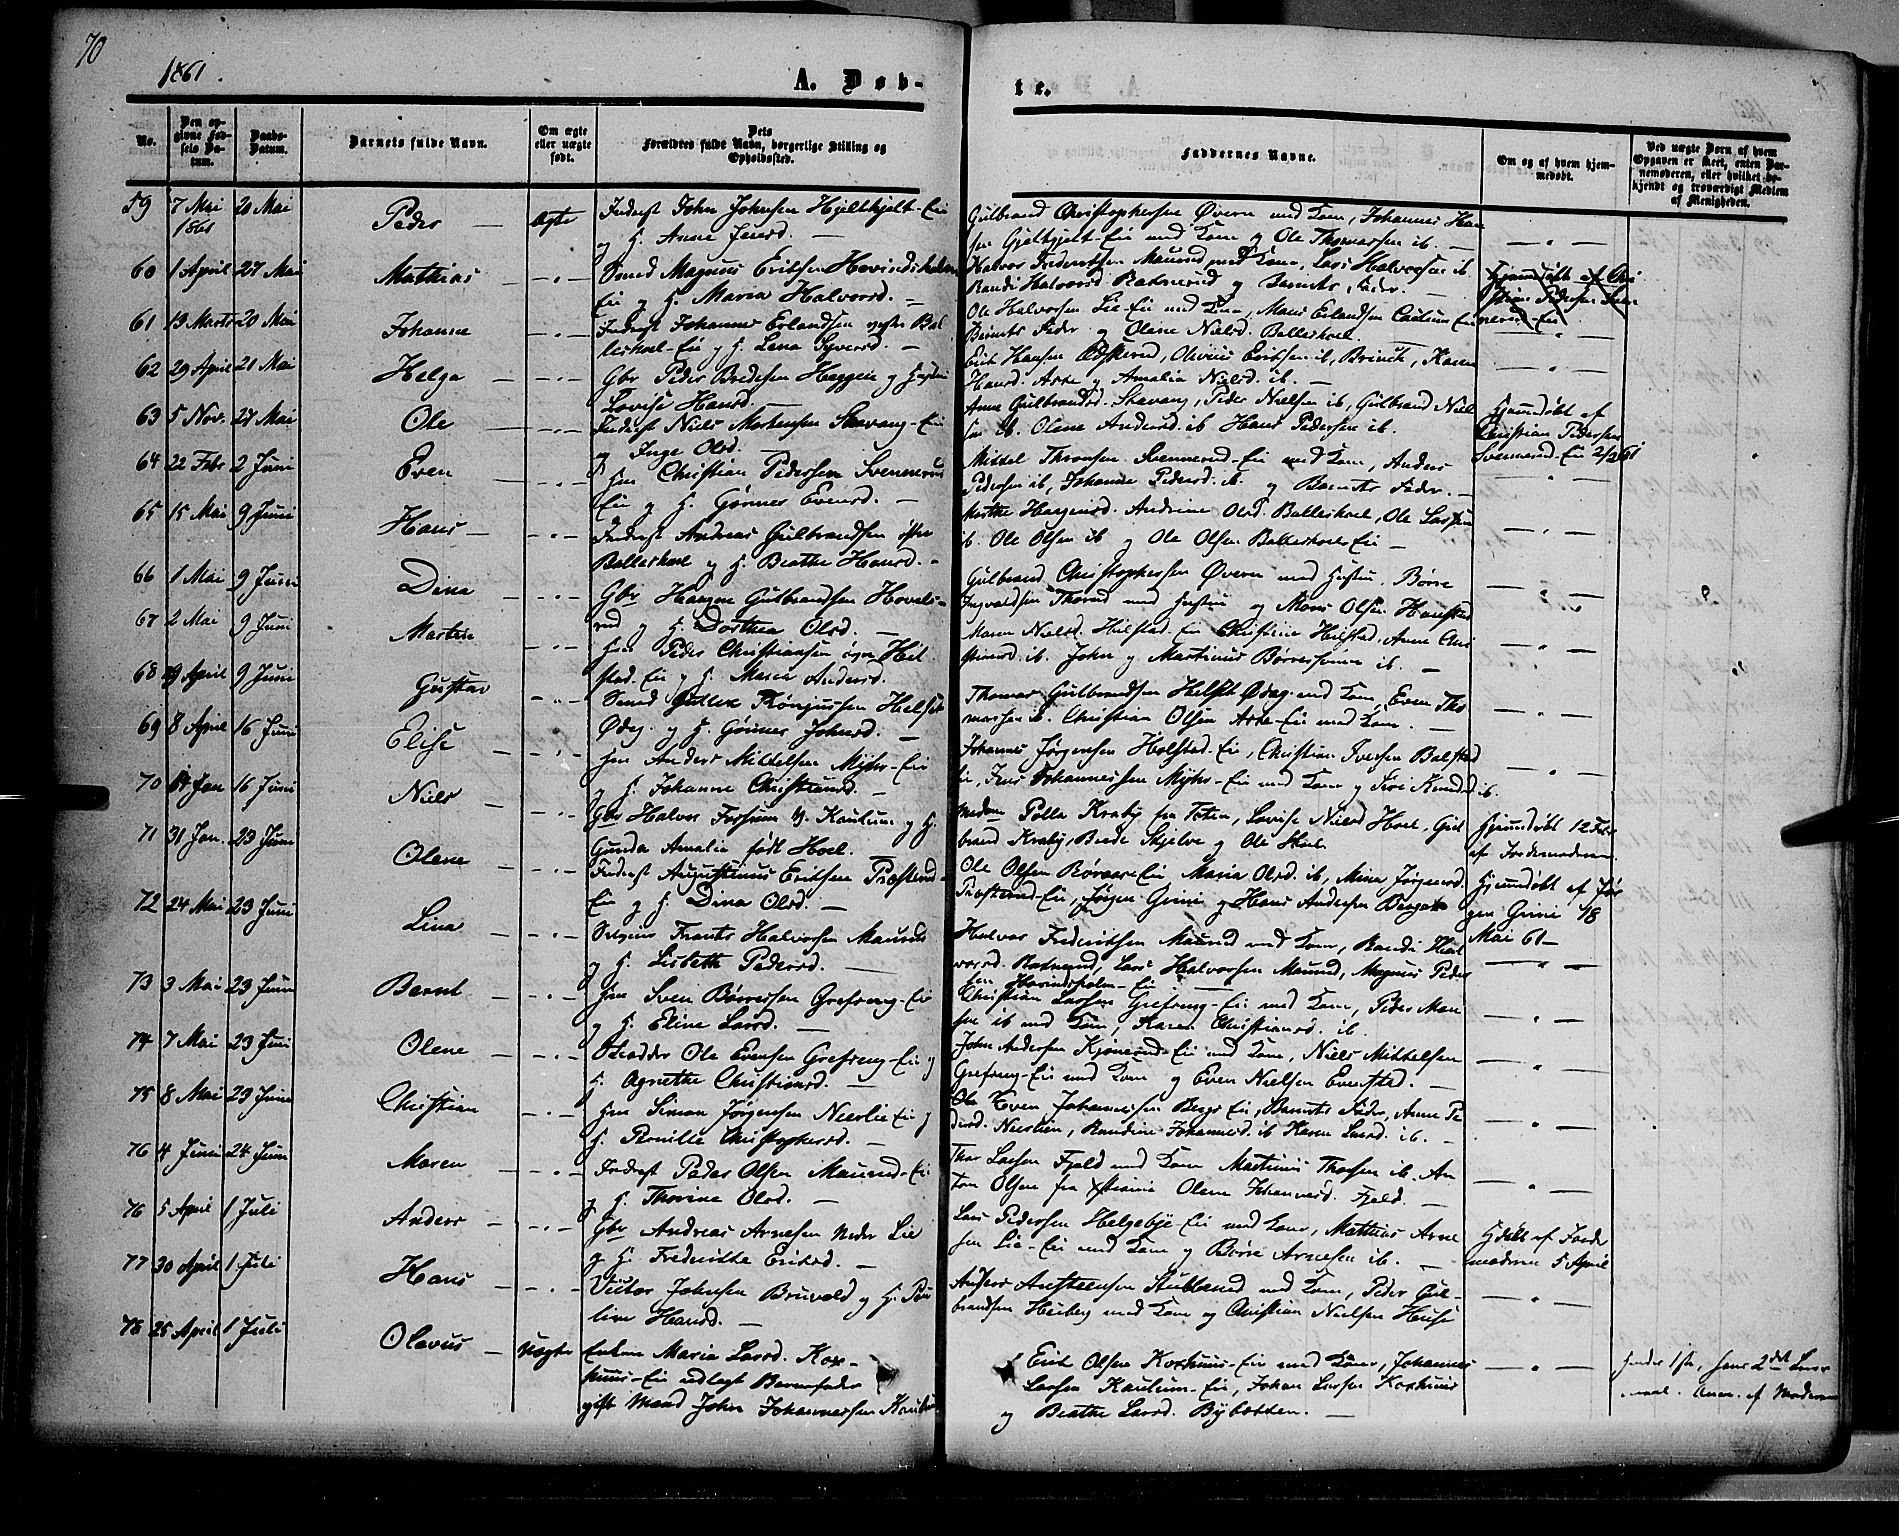 70
1861.
A. Døb-
te.
No.
Den op-
givne Fød-
sels Da-
tum.
Daabs-
Datum.
Barnets fulde Navn.
Om ægte
eller uægte
født.
Dets
Forældres fulde Navn, borgerlige Stilling og
Opholdssted.
Faddernes Navne.
Om og af hvem hjem-
medøbt.
Ved uægte Børn af hvem
Opgaven er skeet, enten Bar-
nemoderen, eller hvilket be-
kjendt og troværdigt Medlem
af Menigheden.
59 7 Mai 1861 20 Mai Peder — ægte
Inderst John Johnsen Hjeltkjelt-Eie
og H. Anne Jensd. —
Gulbrand Christophersen Øvern med Kone, Johannes Han
sen Gjeltkjelt-Eie med Kone og Ole Thomassen ib. —
60 1 April 27 Mai Mathias —"—
Smed Magnus Eriksen Hovindsholm
Eie og H. Maria Halvorsd. —
Halvor Frederiksen Maurud med Kone, Lars Halvorsen ib
Randi Halvorsd. Ratnerud og Barnets Fader. —
Hjemmedøbt af Chri
stian Pedersen Sven
nerud-Eie
61 19 Marts 20 Mai Johanne —"—
Inderst Johannes Erlandsen vestre Bal
leshoel-Eie og H. Lena Syversd. —
Ole Halvorsen Lie-Eie med Kone, Mons Erlandsen Kaulum Eie
Barnets Fader og Olene Nielsd. Balleshoel. —
62 29 April 21 Mai Helga —"—
Gbr Peder Bredesen Heggen og Hustru
Lovise Hansd. —
Erik Hansen Østerud, Olivius Eriksen ib, Brinck, Karen
Hansd. Arte og Amalia Nielsd. ib. —
63 5 Nov. 27 Mai Ole —"—
Inderst Niels Mortensen Stavang-Eie
og Inge Olsd. —
Anne Gulbrandsd. Stavang, Peder Nielsen ib, Gulbrand Niel
sen ib. Olene Andersd. ib Hans Pedersen ib.
Hjemmedøbt af
Christian Pedersen
Svennerud-Eie 2/2 61
64 22 Febr 2 Juni Even —"—
Hm Christian Pedersen Svennerud
Eie og H. Gønner Evensd. —
Mikkel Thronsen Svennerud-Eie med Kone, Anders
Pedersen ib, Johanne Pedersd. ib. og Barnets Fader. —
65 15 Mai 9 Juni Hans —"—
Inderst Andreas Gulbrandsen østre
Balleshoel og H. Beathe Hansd. —
Marthe Haagensd. Andrine Olsd. Balleshoel, Ole Larsen
ib. Ole Olsen ib og Ole Olsen Balleshoel-Eie —
66 1 Mai 9 Juni Dina —"—
Gbr Haagen Gulbrandsen Hovels-
rud og H. Dorthea Olsd. —
Gulbrand Christophersen Øvern med Hustru. Børre
Ingvaldsen Thorud med Hustru og Mons Olsen Hanstad
67 2 Mai 9 Juni Martin —"—
Hm Peder Christiansen Hil-
stad-Eie og H. Maria Andersd.
Maren Nielsd. Hilstad-Eie Christine Hilstad, Anne Chri
stiansd. ib. John og Martinus Børresønner ib. —
68 29 April 9 Juni Gustav —"—
Smed Gullek Rønjussen Helset
Ødeg. og H. Gønner Johnsd. —
Thomas Gulbrandsen Helset Ødeg. med Kone, Even Tho
massen ib. Christian Olsen Arte-Eie med Kone. —
69 8 April 16 Juni Elise —"—
Hm Anders Mikkelsen Myhr-Eie
og H. Johanne Christiansd. —
Johannes Jørgensen Holstad-Eie, Christian Iversen Balstad
Eie, Jens Johannessen Myhr-Eie med Kone og Siri Knudsd ib.
70 14 Jan 16 Juni Niels —"—
Gbr Halvor Fossum og Kaulum og H.
Gunda Amalia født Hoel. —
Madam Polla Kraby fra Toten, Lovise Nielsd Hoel, Gul
brand Kraby, Brede Skjelve og Ole Hoel.
Hjemmedøbt 12 Febr
af Jordemoderen.
71 31 Jan. 23 Juni Olene —"—
Inderst Augustinus Eriksen Præsterud-
Eie og H. Dina Olsd. —
Ole Olsen Rørvaar-Eie, Maria Olsd. ib, Mina Jørgensd.
Præsterud-Eie, Jørgen Grini og Hans Andersen Berger
Hjemmedøbt af Jør
gen Grini 18
Mai 61 —
72 24 Mai 23 Juni Lina —"—
Selveier Frants Halvorsen Maurud
og H. Lisbeth Pedersd. —
Halvor Frederiksen Maurud med Kone, Randi Hal
vorsd. Ratnerud, Lars Halvorsen Maurud, Magnus Peder
sen Hovindsholm-Eie —
73 3 Mai 23 Juni Bernt —"—
Hm Sven Børresen Grefsrng-Eie
og H. Eline Larsd. —
Christian Larsen Grefsrng-Eie med Kone, Peder Man
sen ib med Kone, Karen Christiansd. ib.
74 7 Mai 23 Juni Olene —"—
Skrædder Ole Evensen Grefsrng-Eie og
H. Agnethe Christiansd. —
John Andersen Kjønerud-Eie med Kone, Niels Mikkelsen
Grefsrng-Eie med Kone og Even Nielsen Evenstad. —
75 8 Mai 23 Juni Christian —"—
Hm Simon Jørgensen Neerlie Eie og
H. Pernille Christophersd. —
Ole Even Johannesen Berg-Eie, Barnets Fader, Anne Pe
dersd. Neerlien, Randine Johannesd. ib Karen Larsd. ib. —
76 4 Juni 24 Juni Maren —"—
Inderst Peder Olsen Maurud-Eie
og H. Thorine Olsd. —
Thor Larsen Fjeld med Kone Martinus Thorsen ib. An
ton Olsen fra Xstiania Olene Johannesd. Fjeld. —
76 5 April 1 Juli Anders —"—
Gbr Andreas Arnesen Neder Lie
og H. Frederikke Eriksd. —
Lars Pedersen Helgebye-Eie med Kone, Mathias Arne
sen Lie-Eie med Kone og Børre Arnesen ib. —
Hj døbt af Jorde
moderen 5 April
77 30 April 1 Juli Hans —"—
Victor Johnsen Bruvold og H. Pau
line Hansd. —
Anders Anstensen Stubberud med Kone, Peder Gul-
brandsen Heiberg med Kone og Christian Nielsen Huse
78 25 April 1 Juli Olavus — uægte
Enken Maria Larsd. Kox-
huus-Eie udlagt Barnefader
gift Mand John Johannessen Kaulum
Erik Olsen Koxhuus-Eie med Kone, Johannes
Larsen Kaulum-Eie, Johan Larsen Koxhuus
og Beathe Larsd. Bybotten. —
hendes 1ste, hans 2det Leier
maal. Anm. af Moderen